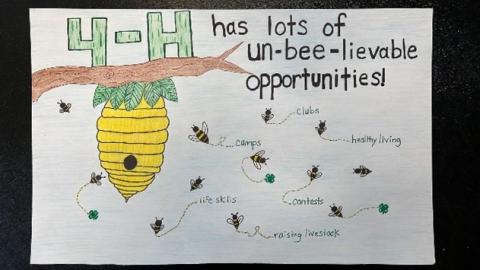 4-H has lots of
un-bee-lievable
opportunities!
clubs
healthy living
camps
life skills
contests
raising livestock